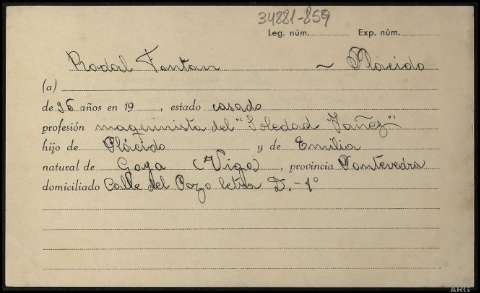 34881-859
Leg. núm. Exp. núm.
Rodal Fontan ~ Placido
(a)
de 36 años en 19 , estado casado
profesión maquinista del "Soledad Yañez"
hijo de Plácido y de Emilia
natural de Coya (Vigo) , provincia Pontevedra
domiciliado Calle del Pozo letra D.-1º